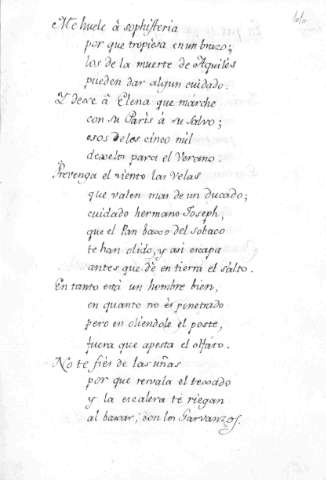 Me huele â sophisteria
por que tropiesa en un
los de la muerte de Aquiles
pueden dar algun cuidado.
Y dexe â Elena que marche
con su Parìs â su salvo;
esos deles cinco mil
dexelos para el Verano.
Prevenga el viento las velas
que valen mas de un ducado;
cuidado hermano Joseph,
que el Pan baxo del sobaco
te han olido, y asi escapa
antes que dè en tierra el salto.
En tanto està un hombre bien,
en quanto no ês penetrado
pero en oliendole el poste,
fuera que apesta el olfato.
No te fies de las uñas
por que resvala el texado
y la escalera te riegan
al baxar, con los Garvanzos.